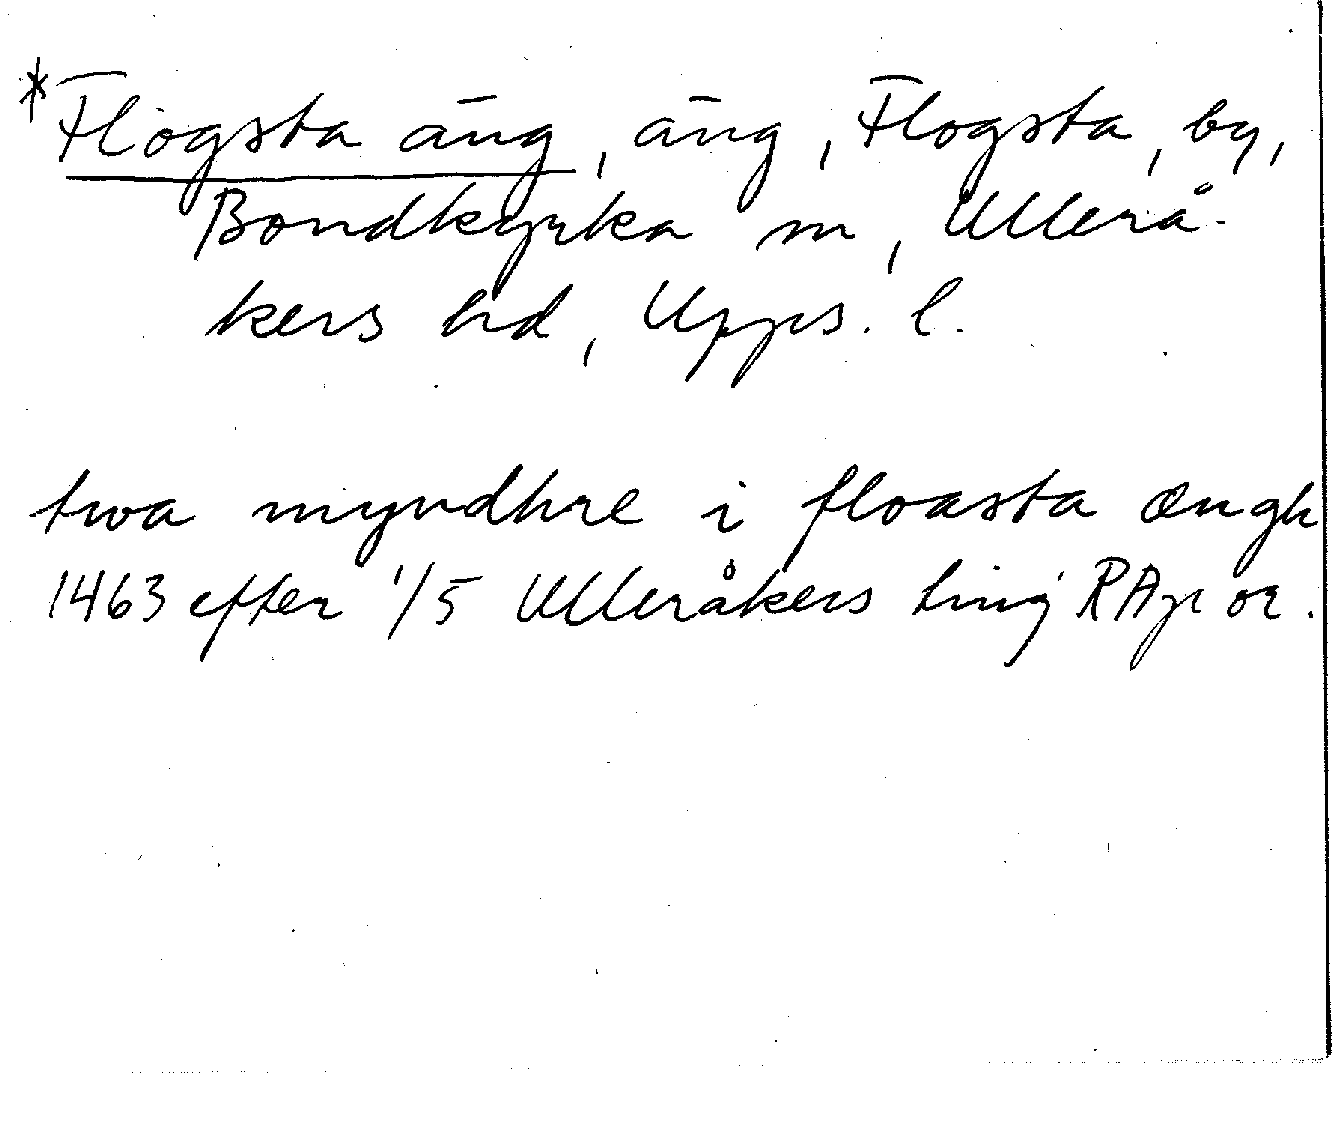 *Flogsta äng, äng, Flogsta, by,
Bondkyrka sn, Ullerå-
kers hd, Upps. l.
twa myndhre i floasta ængh
1463 efter 1/5 Ulleråkers ting RAp or.